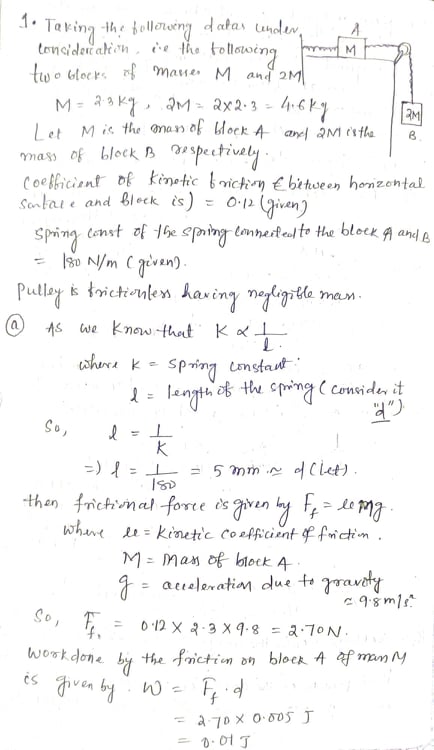 1. Taking the following datas under
consideration, i.e the following
two blocks of masses M and 2M
A
M
2M
B
M = 2.3 kg, 2M = 2x2.3 = 4.6 kg
Let M is the mass of block A and 2M is the
mass of block B respectively.
Coefficient of kinetic friction (between horizontal
surface and Block is) = 0.12 (given)
spring const of the spring connected to the block A and B
= 180 N/m (given).
Pulley is frictionless having negligible mass.
(a) As we know that K ∝ 1/l.
where K = spring constant
l = length of the spring (consider it "d").
So, l = 1/K
=) l = 1/180 = 5 mm ≈ d (let).
then frictional force is given by F_f = μmg.
where μ = kinetic coefficient of friction.
M = Mass of block A.
g = acceleration due to gravity
≈ 9.8 m/s²
So, F_f = 0.12 X 2.3 X 9.8 = 2.70N.
Workdone by the friction on block A of mass M
is given by. W = F_f . d
= 2.70 X 0.005 J
= 0.01 J